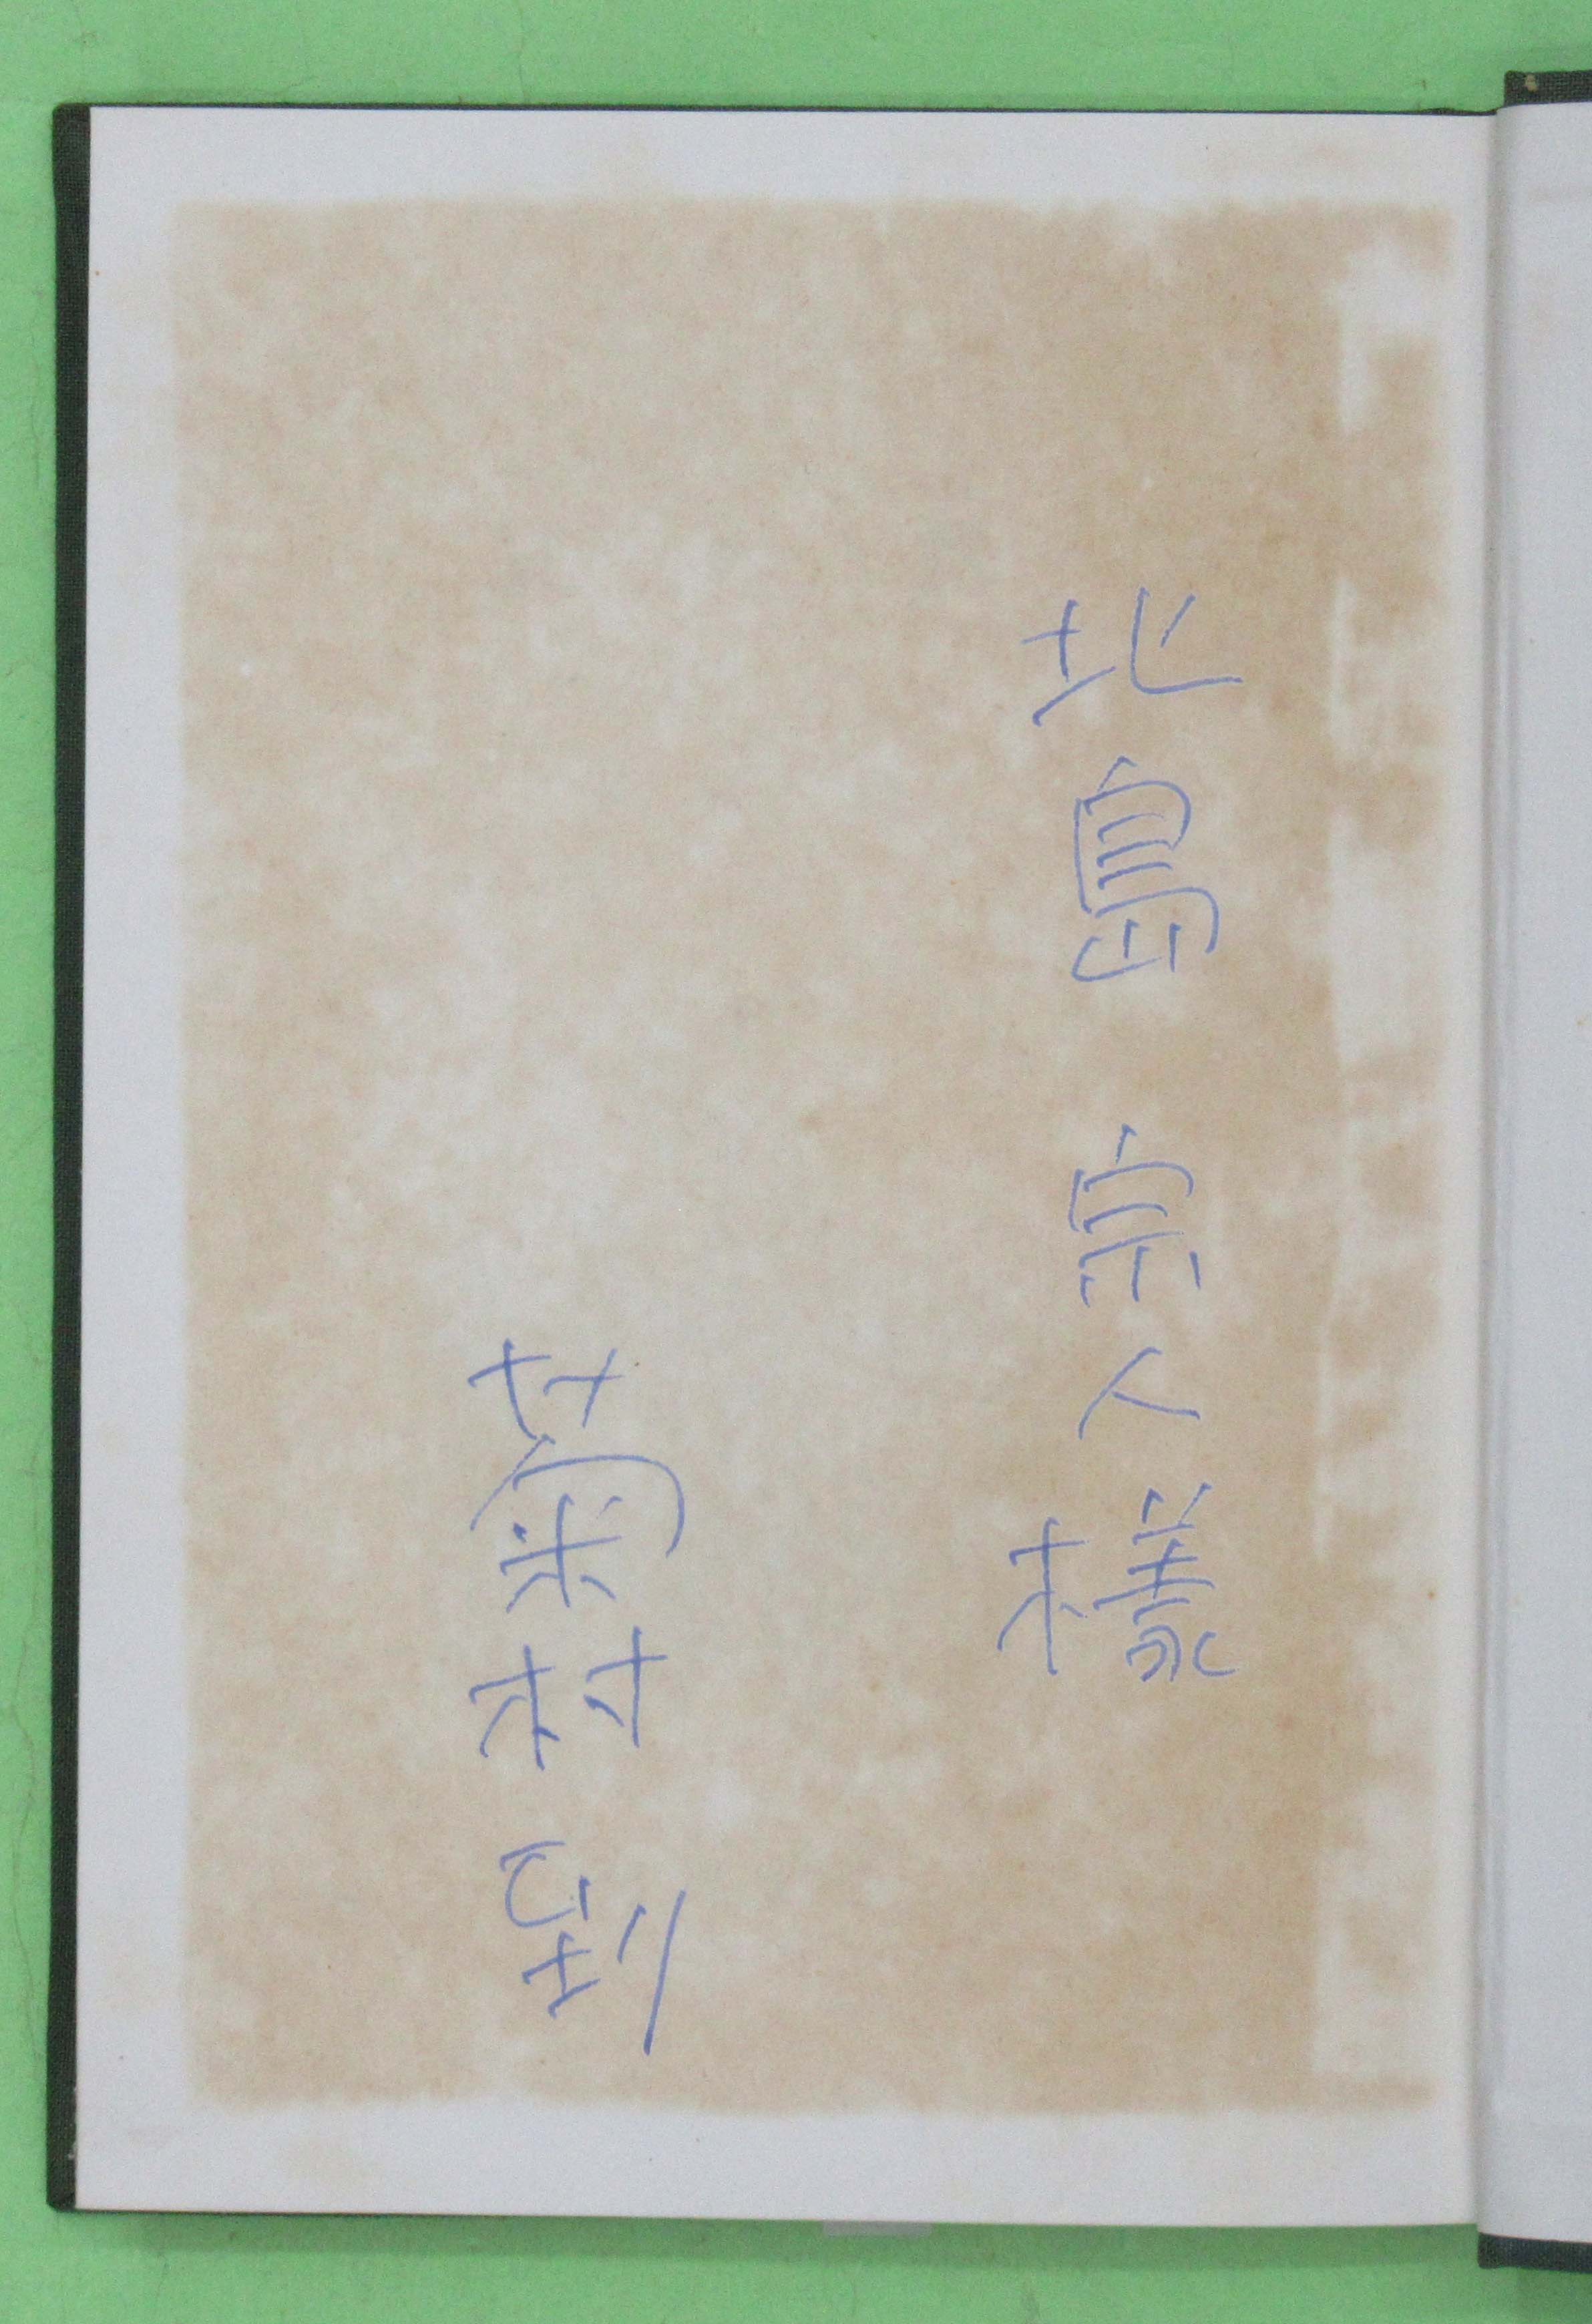 北島宗人様
菊村到